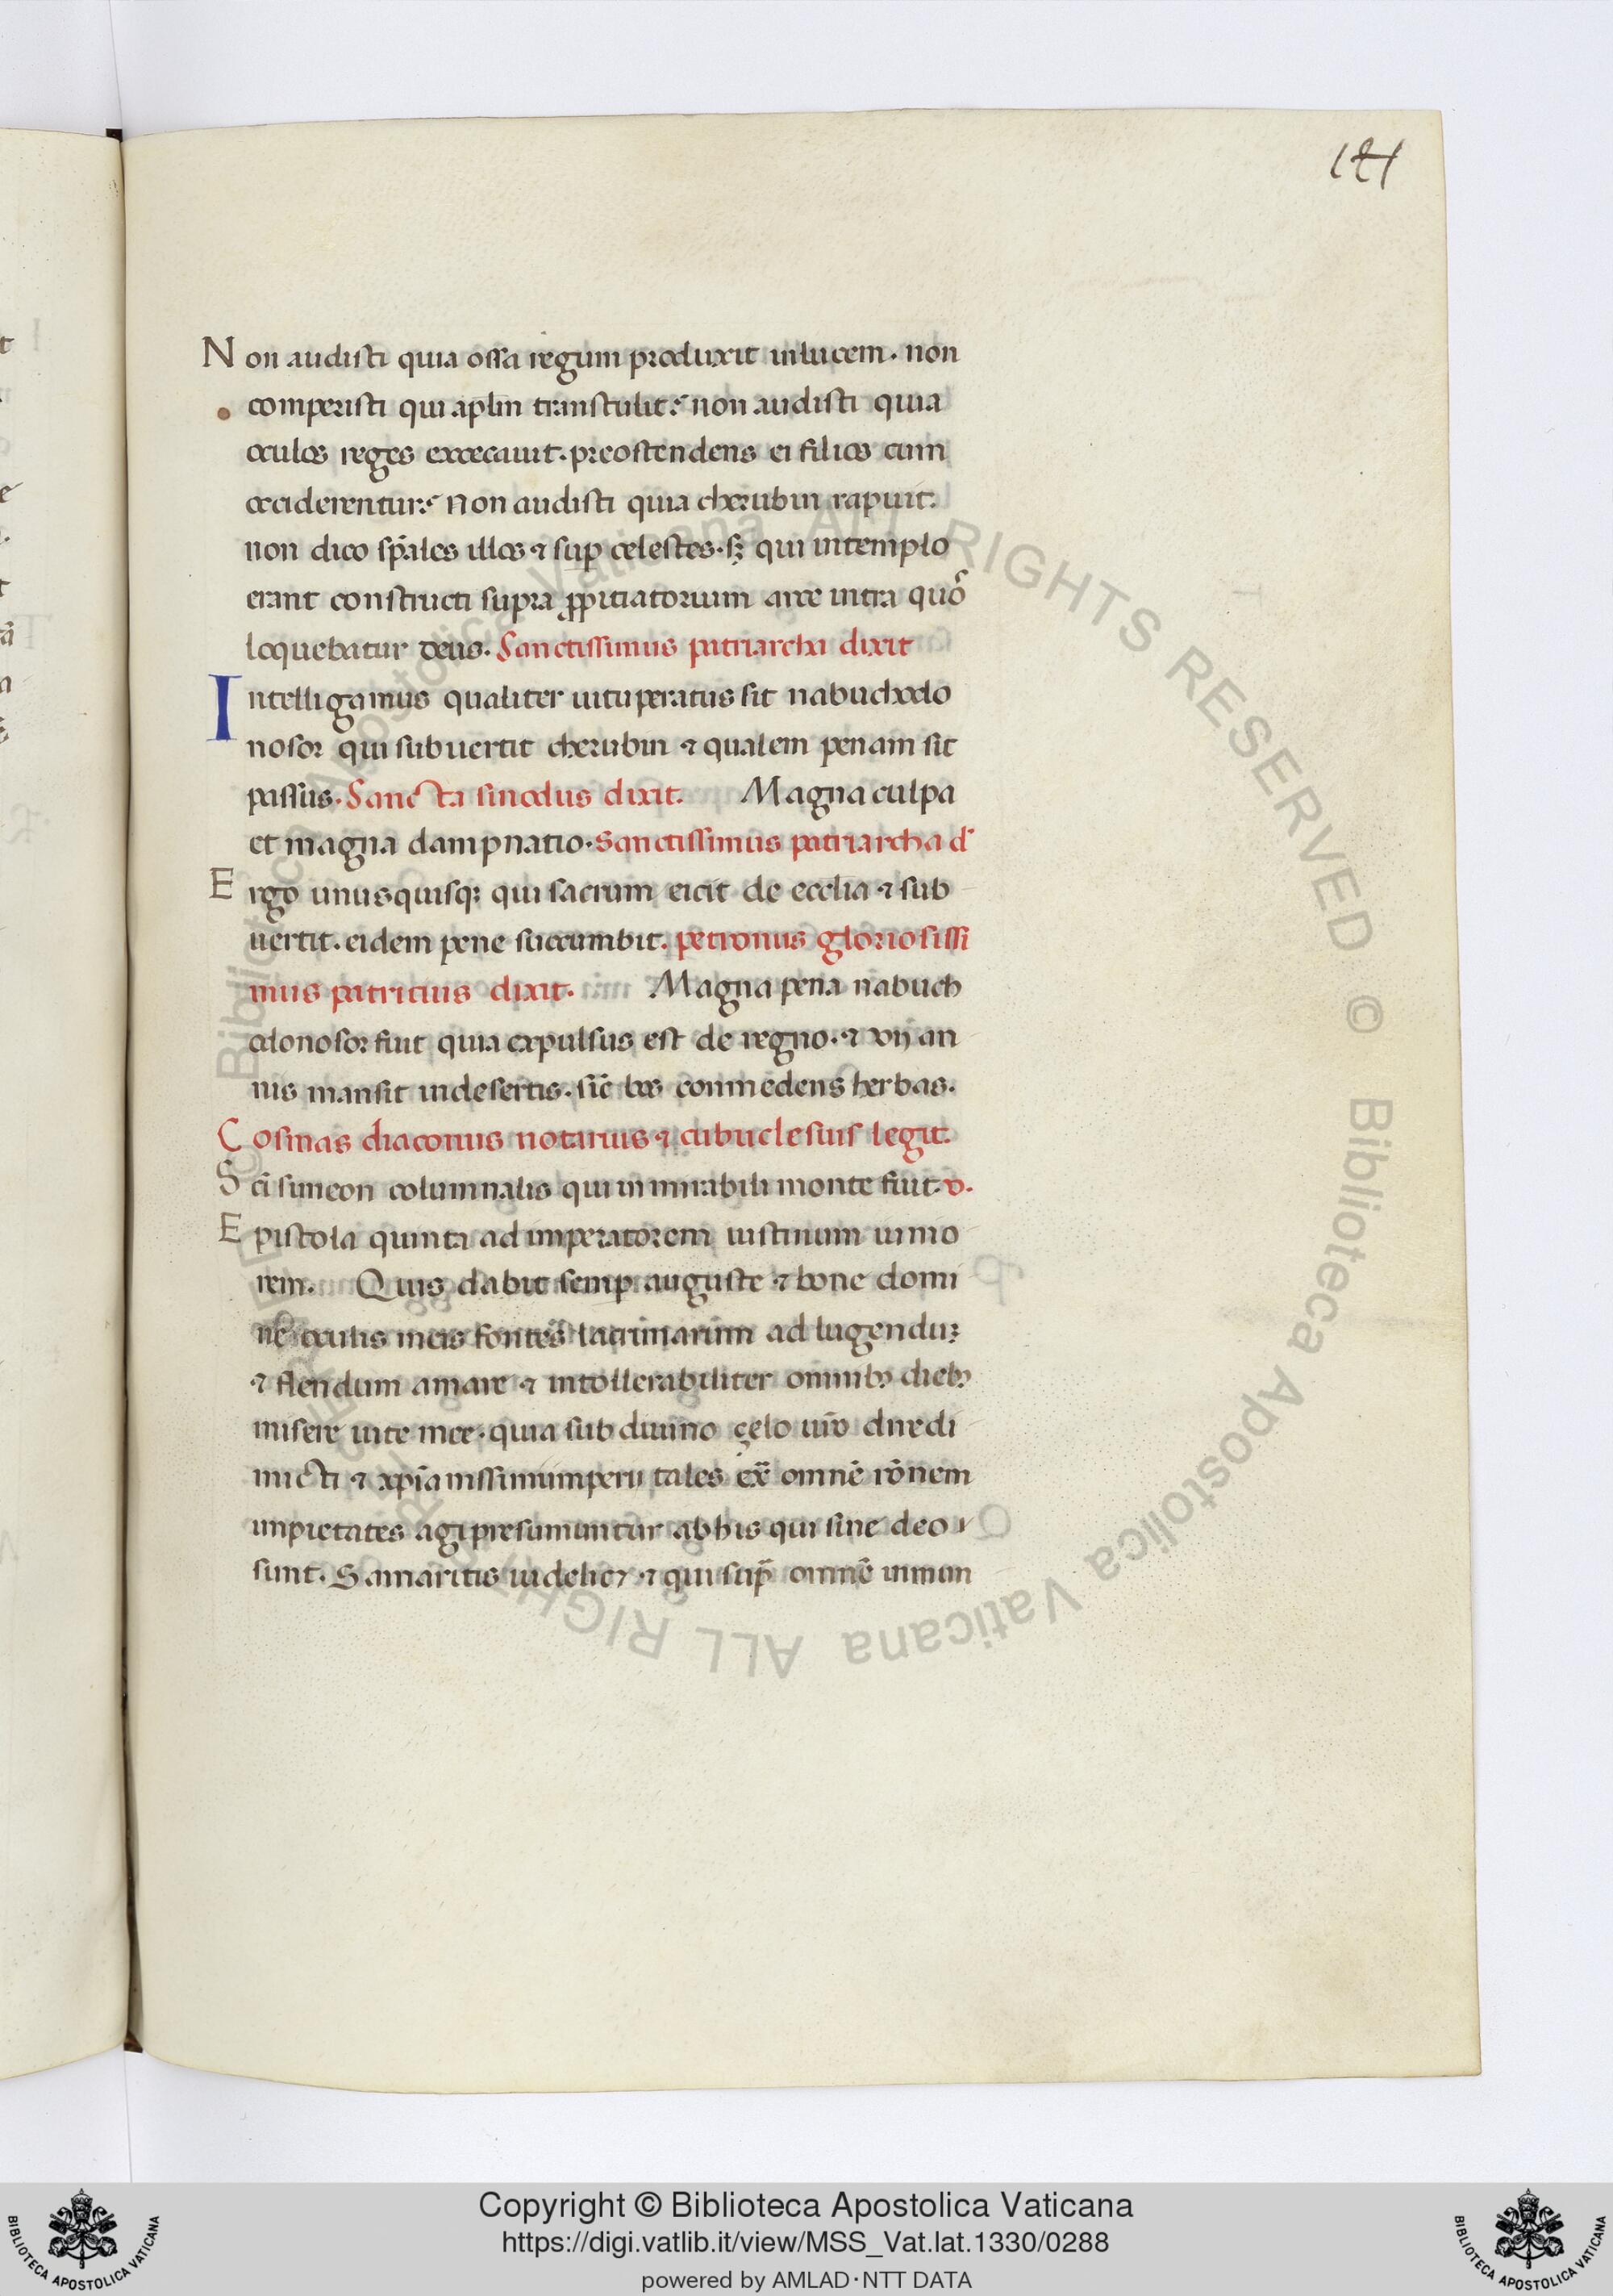 141
Non audisti quia ossa regum produxit in lucem. non
comperisti qui aplm transtulit? non audisti quia
oculos reges excecauit. preostendens ei filios cum
occiderentur? Non audisti quia cherubin rapuit.
non dico sp̄ales illos ⁊ sup celestes. sꝫ qui in templo
erant constructi supra ꝓpitiatorium arce intra quoꝭ
loquebatur deus. Sanctissimus patriarcha dixit
Intelligamus qualiter uituperatus sit nabuchodo
nosor qui subuertit cherubin ⁊ qualem penam sit
passus. Sancta sinodus dixit. Magna culpa
et magna dampnatio. Sanctissimus patriarcha d᷎
Ergo unusquisqꝫ qui sacrum eicit de ecclia ⁊ sub
uertit. eidem pene succumbit. petronus gloriosissi
mus patricius dixit. Magna pena nabuch
odonosor fuit quia expulsus est de regno. ⁊ vij an
nis mansit in desertis. sic̄ bos commedens herbas.
Cosmas diaconus notarius ⁊ cubuclesius legit.
Sc̄i simeon columnalis qui in mirabili monte fuit. v.
Epistola quinta ad imperatorem iustinum iunio
rem. Quis dabit semp auguste ⁊ bone domi
ne oculis meis fontes lacrimarum ad lugenduꝫ
⁊ flendum amare ⁊ intollerabiliter omnibꝫ diebꝫ
misere uite mee. quia sub diuino celo ur̄o dn̄e di
micti ⁊ xp̄ianissim imperii tales ex̄ omnē rōnem
impietates agi presumuntur ab his qui sine deo
sunt. Samaritis uidelicꝫ ⁊ qui sup̄ omnē inmun
Copyright © Biblioteca Apostolica Vaticana
https://digi.vatlib.it/view/MSS_Vat.lat.1330/0288
powered by AMLAD・NTT DATA
BIBLIOTECA APOSTOLICA VATICANA
BIBLIOTECA APOSTOLICA VATICANA
© Biblioteca Apostolica Vaticana ALL RIGHTS RESERVED © Biblioteca Apostolica Vaticana ALL RIGHTS RESERVED